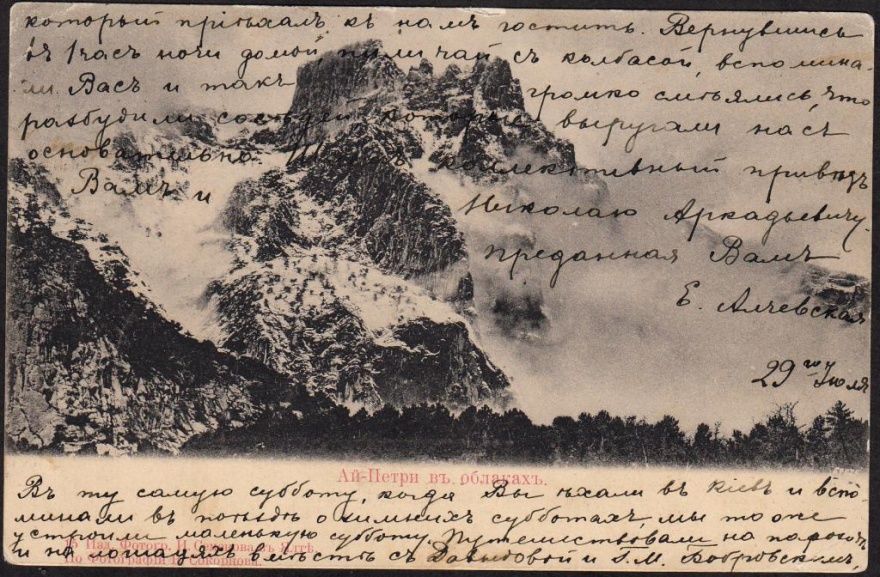 который пріѣхалъ къ намъ гостить. Вернувшись
въ 1 часъ ночи домой, пили чай съ колбасой, вспомина-
ли Васъ и такъ громко смѣялись, что
разбудили сосѣдей которые выругали насъ
основательно. Шлемъ коллективный привѣтъ
Вамъ и Николаю Аркадьевичу.
преданная Вамъ
Е. Алчевская
29го Іюля
Ай-Петри въ облакахъ.
Въ ту самую субботу, когда Вы ѣхали въ Кіевъ и вспо-
минали въ поѣздѣ о зимнихъ субботахъ, мы тоже
устроили маленькую субботу. Путешествовали на пароходѣ
и на лошадяхъ вмѣстѣ съ Давыдовой и Г. М. Бобровскимъ,
15 Изд. Фотогр. П. Сокорнова въ Ялтѣ.
По Фотографіи П. Сокорнова.